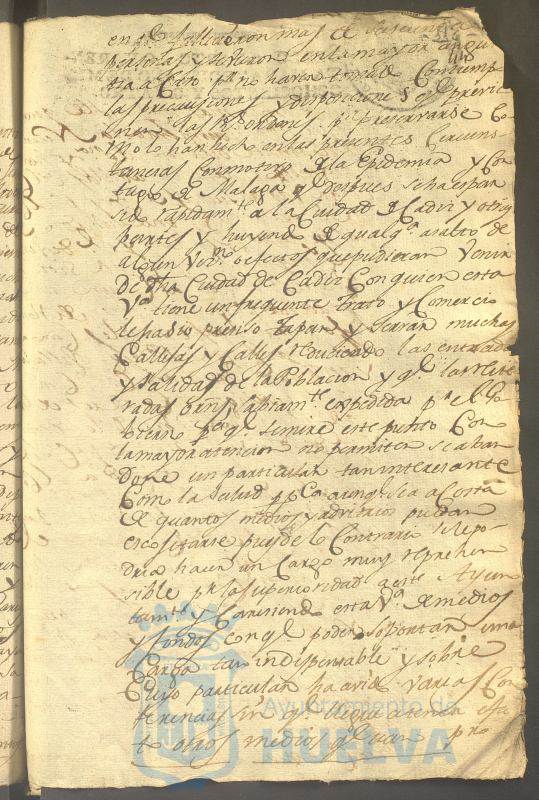 personas y tubieron en la mayor angus
tia a esto pr. no haver tomado Contiemp
las precauciones y disposiciones q.e previe
nen las Rs. ordenes pa. preservarse Co
mo lo han hecho en las presentes Circuns
tancias Con motivo de la Epidemia y Con
tagio de Malaga q.e despues se ha espar
sido rapidam.te a la Ciudad de Cadiz y otras
partes y huyendo de qualq.a asalto de
algun efectos que pudieran venir
de dha Ciudad de Cadiz Con quien esta
Va. tiene un frequente trato y Comercio
le ha sido preciso tapar y serrar muchas
Callejas y Calles reduciendo las entradas
y salidas de la Poblacion y q.e las reite
radas ords. expedidas pa. el Go
bierno pa. q.e se mire este punto Con
la mayor atencion no permiten se aban
done un particular tan interesante
Como la salud pca. aunq.e sea a Costa
de quantos medios y advitrios puedan
escositarse pues de lo Contrario se le po
dria hacer un Cargo muy reprehen
sible pr. la superioridad a este Ayun
tam.to y Caresiendo esta Va. de medios
y fondos con q.e poder soportar una
Carga tan indispensable y sobre
Cuyo particular ha avido varias Con
ferencias sin q.e
te otros medios q.e pro
Ayuntamiento de
HUELVA